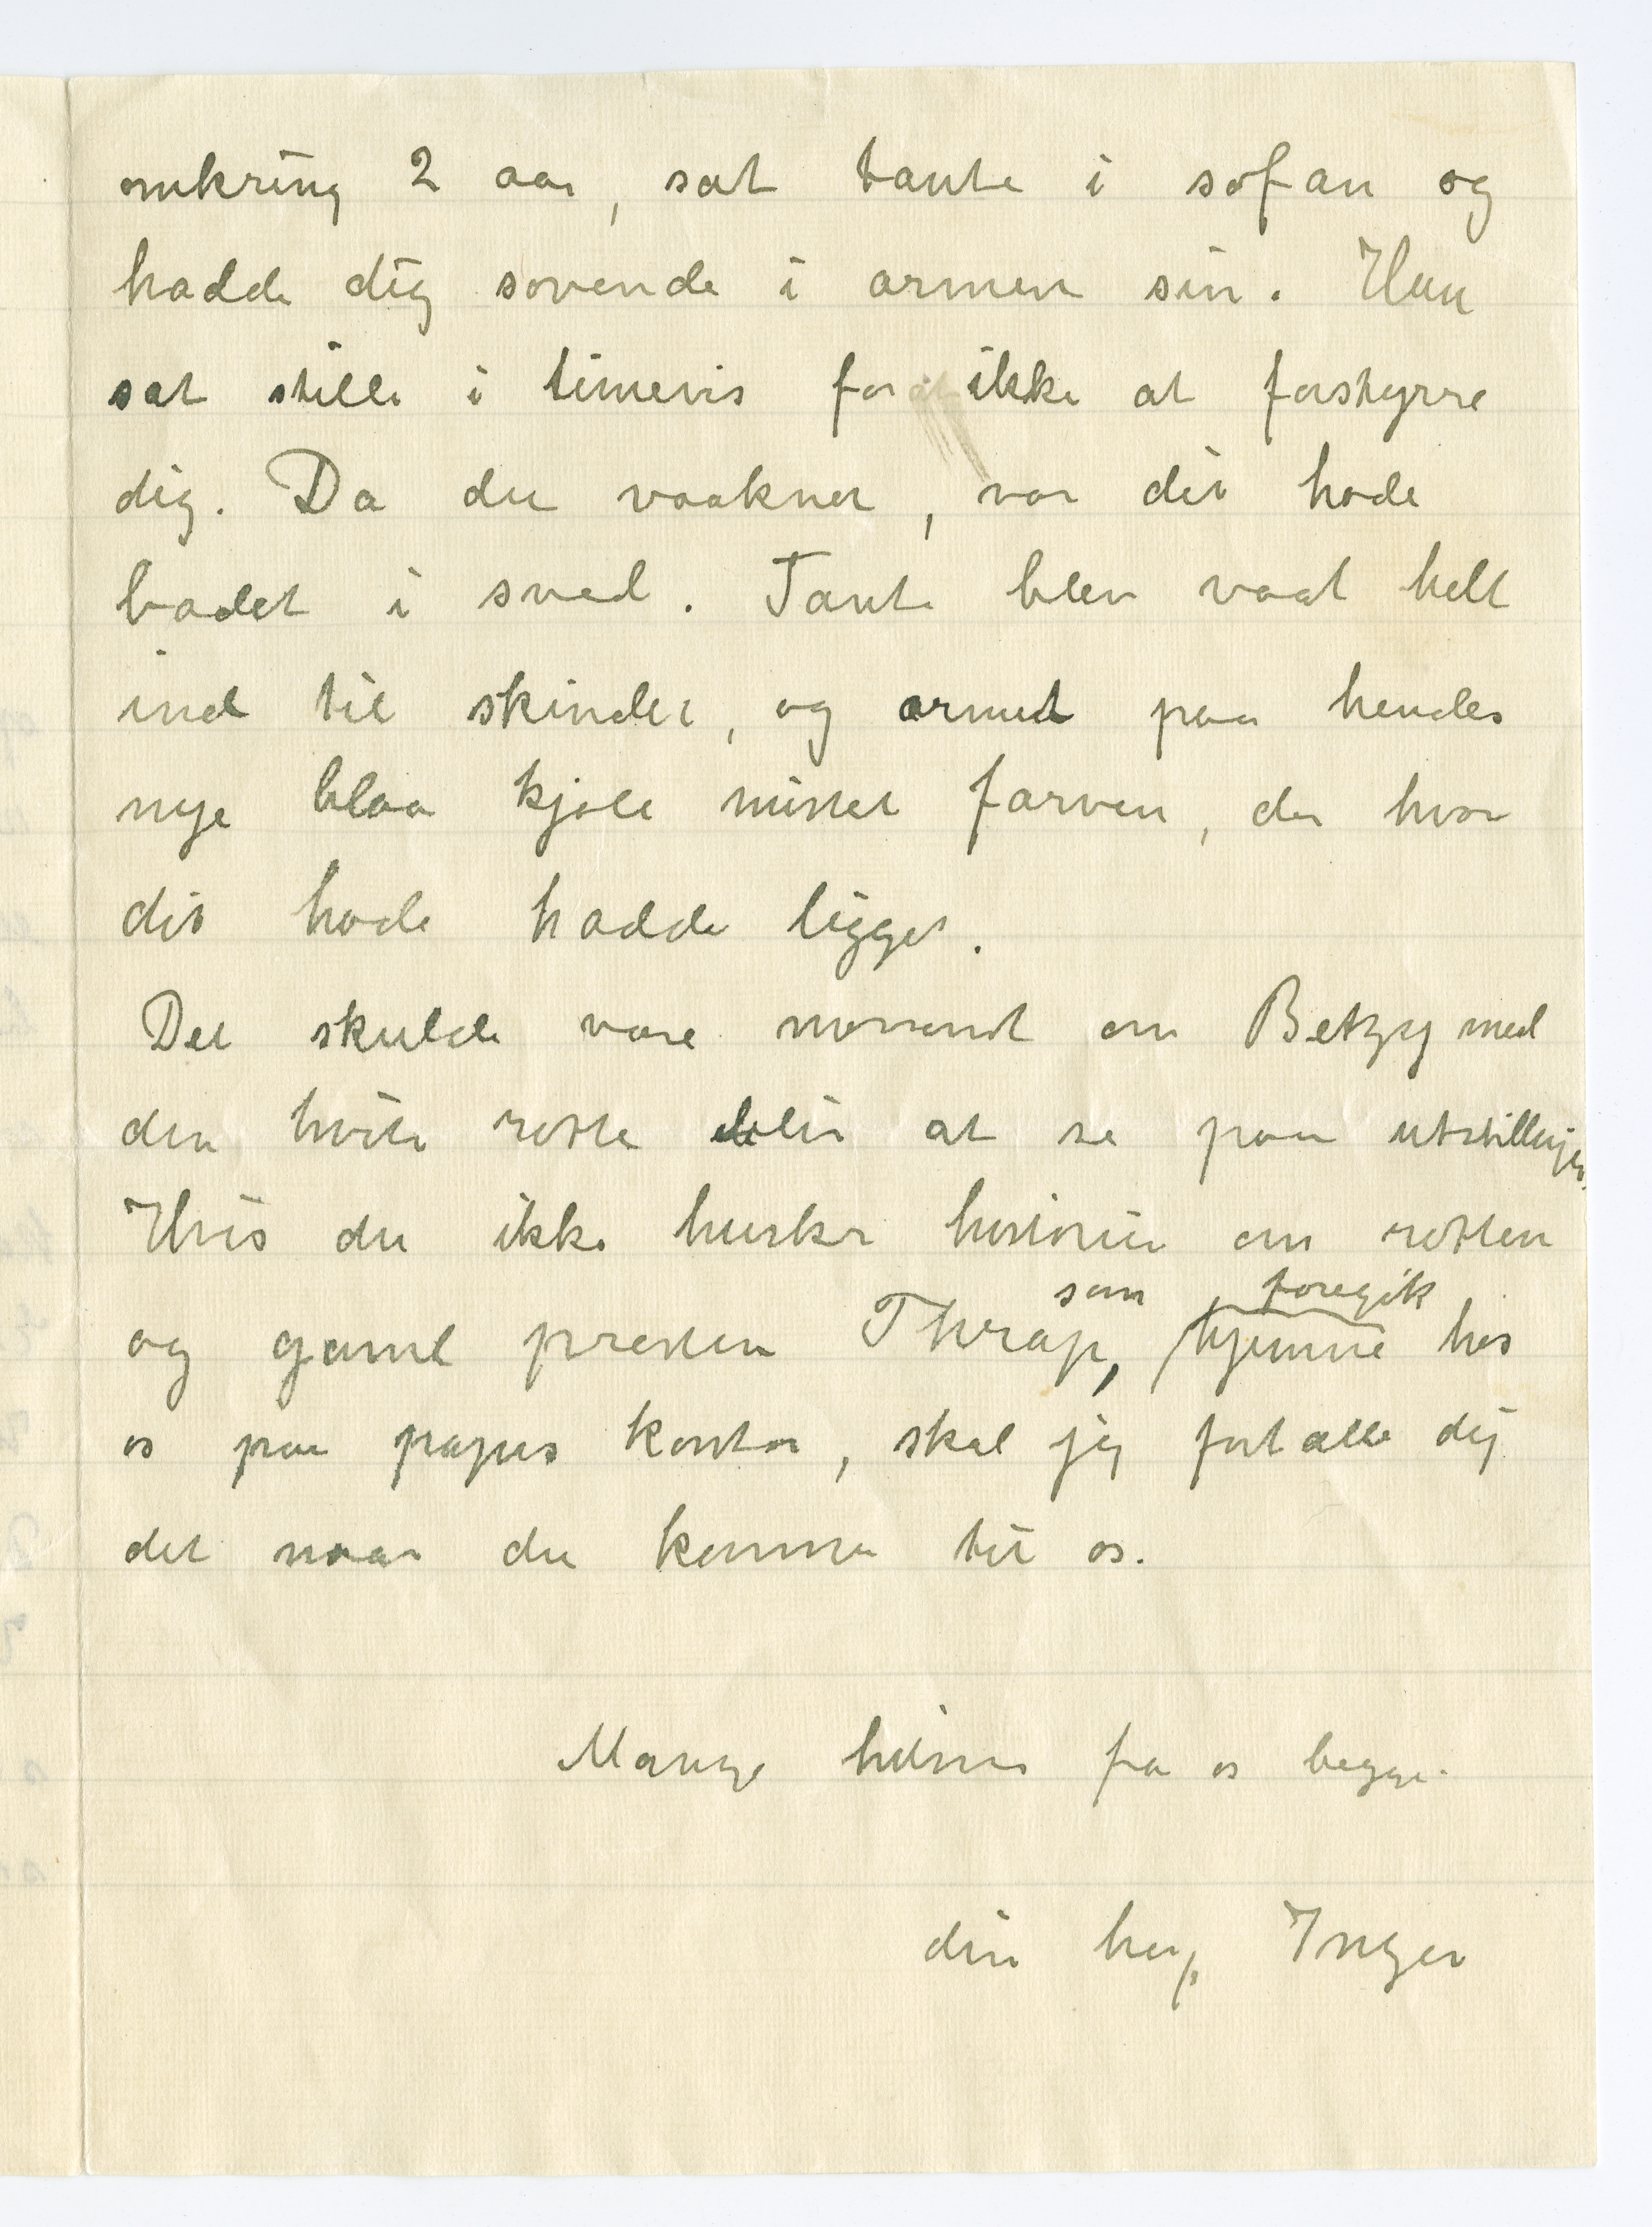 omkring 2 aar, sat tante i sofan og
hadde dig sovende i armen sin. Hun
sat stille i timevis for ikke at forstyrre
dig. Da du vaaknet, var dit hode
badet i sved. Tante blev vaat helt
ind til skindet, og ermet paa hendes
nye blaa kjole mistet farven, der hvor
dit hode hadde ligget.
Det skulde være morsomt om Betzy med
den hvite rotte blir at se paa utstillingen.
Hvis du ikke husker historien om rotten
og gaml presten Thrap, som foregik hjemme hos
os paa papas kontor, skal jeg fortælle dig
det naar du kommer til os.
Mange hilsner fra os begge.
din heng. Inger